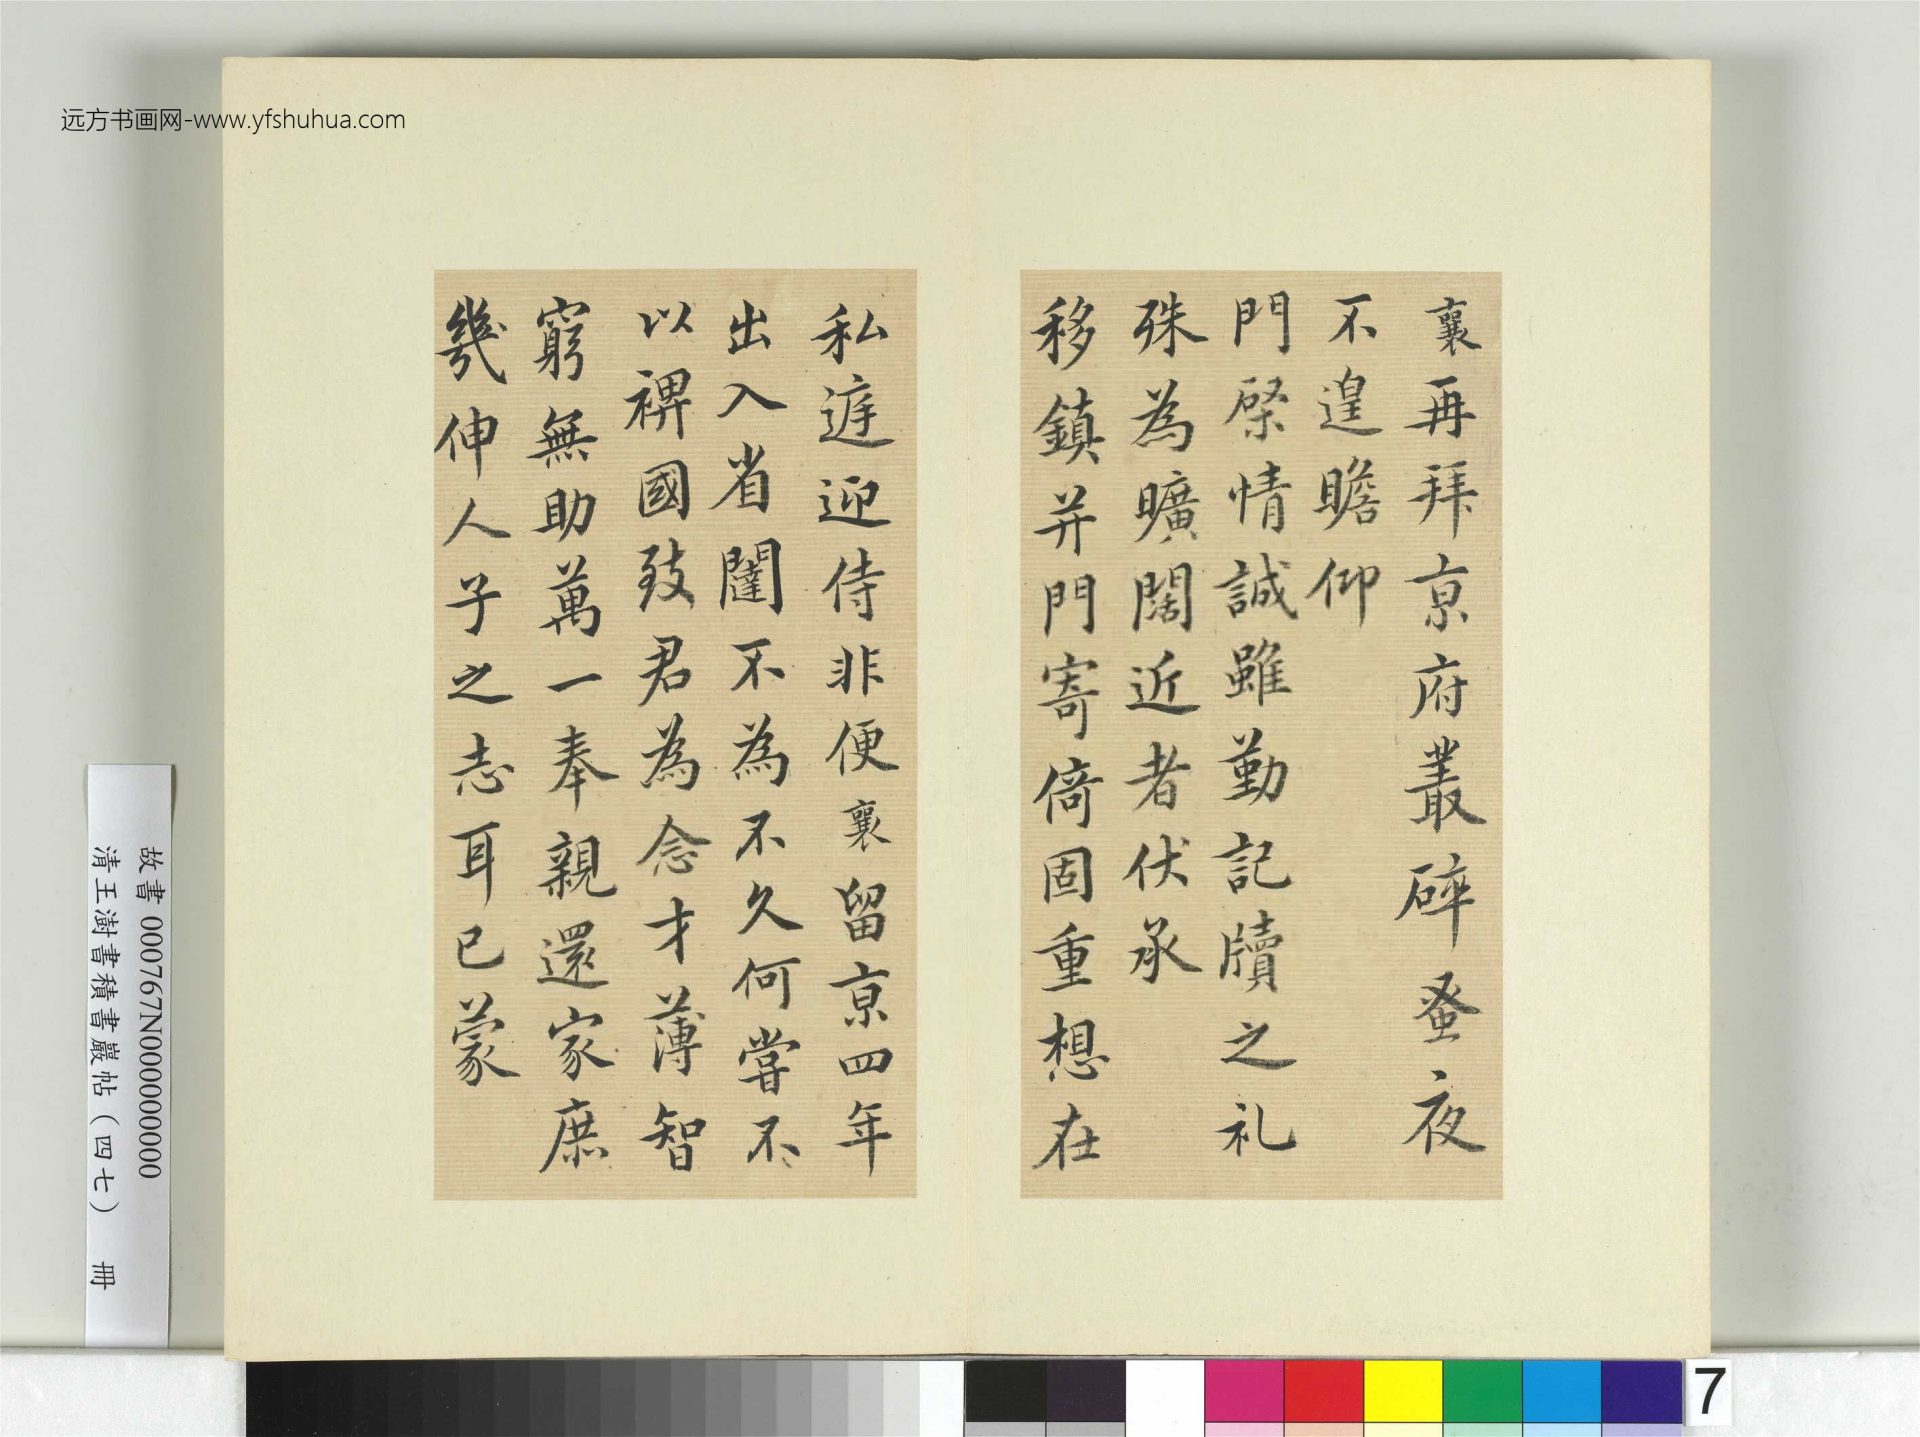 远方书画网-www.yfshuhua.com
襄再拜京府叢碎蚤夜
不遑瞻仰
門棨情誠雖勤記牘之礼
殊為曠闊近者伏承
移鎮并門寄倚固重想在
私遽迎侍非便襄留京四年
出入省闥不為不久何嘗不
以裨國致君為念才薄智
窮無助萬一奉親還家庶
幾伸人子之志耳已蒙
故書 000767N000000000
清王澍書積書巖帖（四七） 冊
7